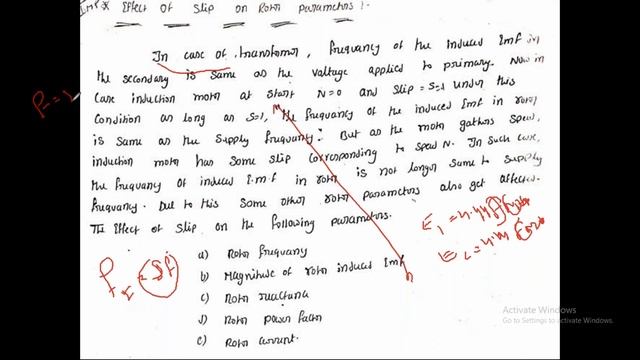 Imp * Effect of Slip on Rotor Parameters :
In case of transformer, frequency of the induced Emf in
the secondary is same as the voltage applied to primary. Now in
case induction motor at start N=0 and slip = S=1 under this
condition as long as S=1, the frequency of the induced Emf in rotor
is same as the supply frequency. But as the motor gathers speed,
induction motor has some slip corresponding to speed N. In such case,
the frequency of induced E.m.f in rotor is not longer same to supply
frequency. Due to this some other rotor parameters also get affected.
The Effect of slip on the following parameters.
a) Rotor frequency
b) Magnitude of rotor induced Emf
c) Rotor reactance
d) Rotor power factor
e) Rotor current.
Activate Windows
Go to Settings to activate Windows.